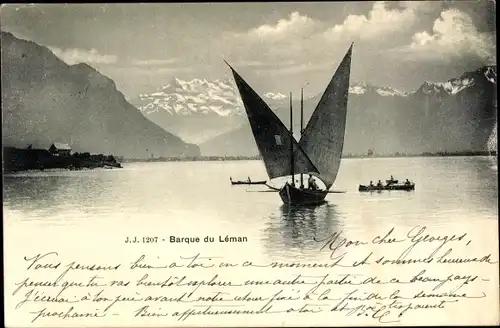 J.J. 1207 - Barque du Léman
Mon cher Georges,
Nous pensons bien à toi en ce moment et sommes heureux de
penser que tu vas bientôt explorer une autre partie de ce beau pays –
J'écrirai à ton père avant notre retour fixé à la fin de la semaine
prochaine – Bien affectueusement à toi